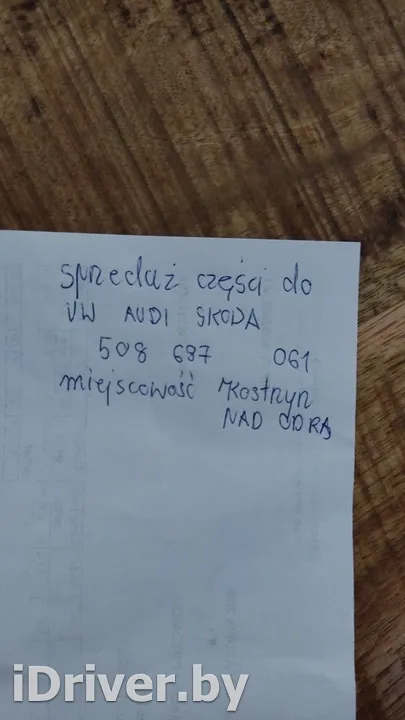 sprzedaż części do
VW AUDI SKODA
508 687 061
miejscowość Kostrzyn
NAD ODRĄ
iDriver.by